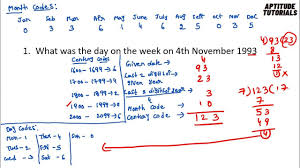 APTITUDE
TUTORIALS
Month Codes:
Jan Feb Mar Apr May June July Aug Sept Oct Nov Dec
0 3 3 6 1 4 6 2 5 0 3 5
1. What was the day on the week on 4th November 1993
Century Codes
1600 - 1699 → 6
1700 - 1799 → 4
1800 - 1899 → 2
1900 - 1999 → 0
2000 -
Given date → 4
Last 2 digit of → 93
given year
23
Month code → 3
Century code → 0
123
4) 93 (23
8
13
12
7) 123 (17
7
53
49
4
Day Codes:
Mon - 1 Thur - 4 Sun - 0
Tues - 2 Fri - 5
Wed - 3 Sat - 6